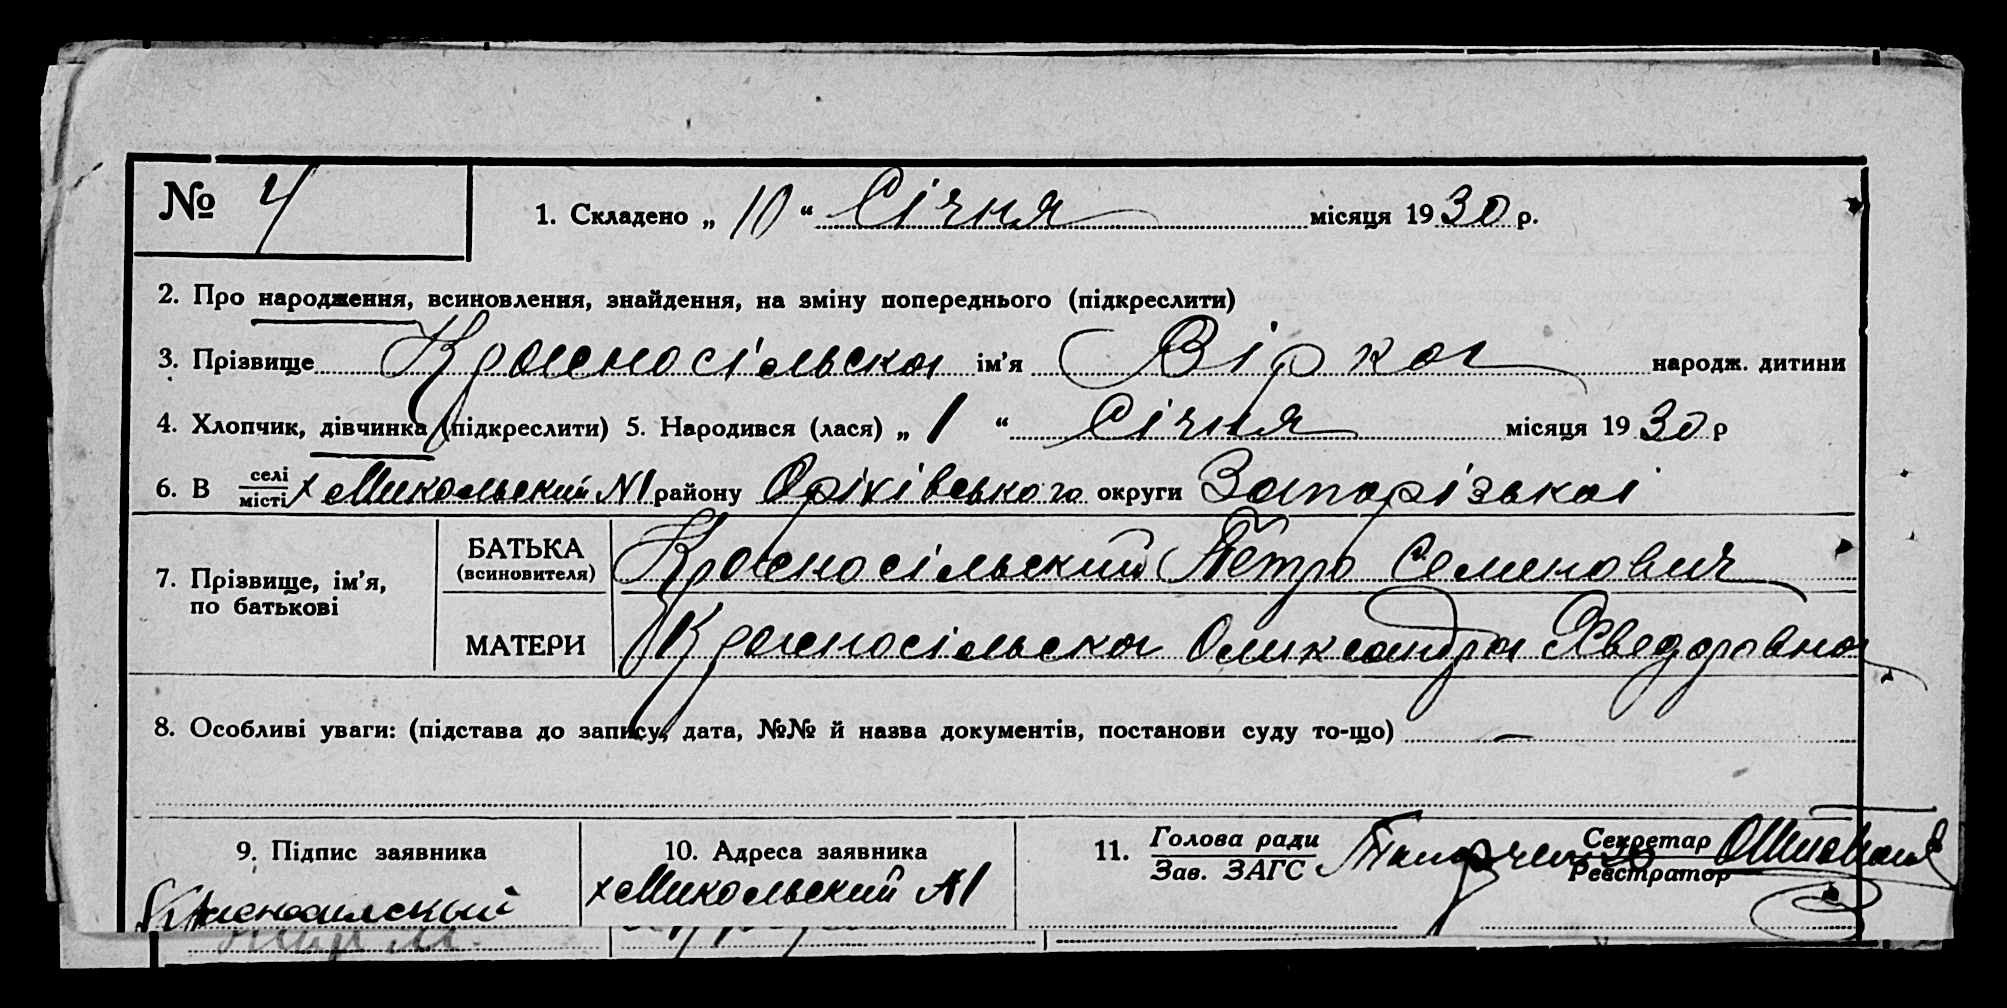 № 4
1. Складено „ 10 “ Січня місяця 1930 р.
2. Про народження, всиновлення, знайдення, на зміну попереднього (підкреслити)
3. Прізвище Красносільська ім'я Вірка народж. дитини
4. Хлопчик, дівчинка (підкреслити) 5. Народився (лася) „ 1 “ Січня місяця 1930 р
6. В селі місті х Микольский №1 району Оріхівського округи Запорізькаі
7. Прізвище, ім'я, по батькові
БАТЬКА (всиновителя) Красносільский Петро Семенович
МАТЕРИ Красносільска Олександра Хведоровна
8. Особливі уваги: (підстава до запису, дата, №№ й назва документів, постанови суду то-що) —
9. Підпис заявника
10. Адреса заявника
х Микольский №1
11. Голова ради
Зав. ЗАГС
Секретар
Реєстратор